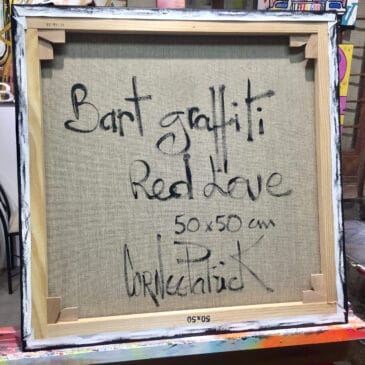 Bart graffiti
Red Love
50x50 cm
CORNéePatricK
50x50